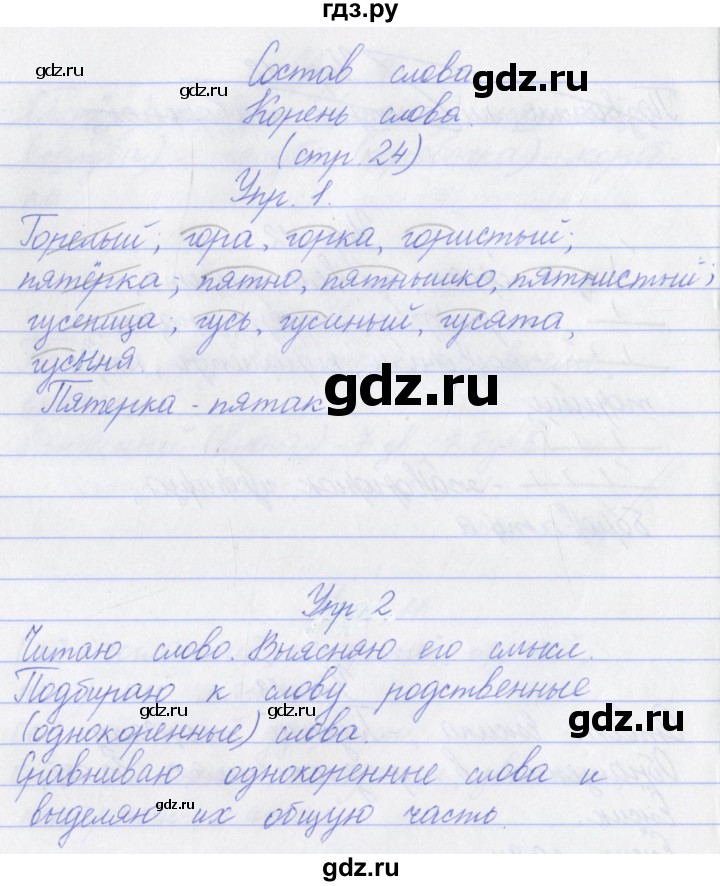 гдз.ру
Состав слова
Корень слова.
(стр 24)
Упр. 1.
Горелый; гора, горка, гористый;
пятёрка; пятно, пятнышко, пятнистый;
гусеница; гусь, гусиный, гусята,
гусыня
Пятерка - пятак
gdz.ru
gdz.ru
gdz.ru
gdz.ru
gdz.ru
Упр 2
Читаю слово. Выясняю его смысл.
Подбираю к слову родственные
(однокоренные) слова.
Сравниваю однокоренные слова и
выделяю их общую часть.
gdz.ru
gdz.ru
gdz.ru
gdz.ru
gdz.ru